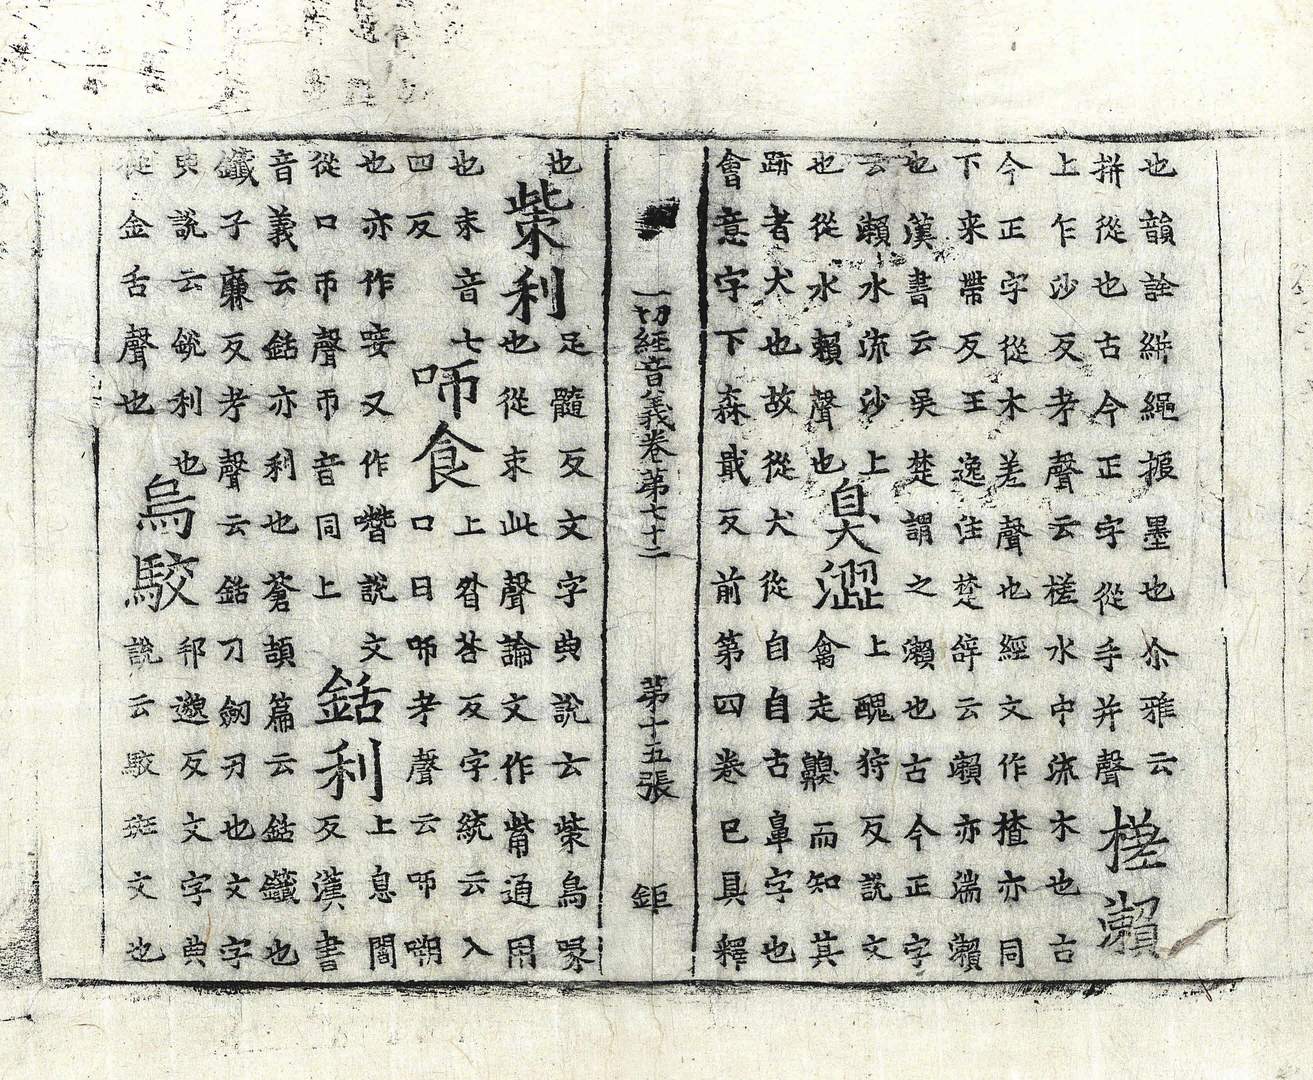 也韻詮絣繩振墨也尒雅云
拼從也古今正字從手并聲
槎瀨
上乍沙反考聲云槎水中流木也古
今正字從木差聲也經文作楂亦同
下来帶反王逸注楚辝云瀨亦湍瀨
也漢書云吳楚謂之瀨也古今正字
云瀨水流沙上
也從水賴聲也
臭澀
上醜狩反說文
禽走齅而知其
跡者犬也故從犬從自自古鼻字也
會意字下森戢反前第四卷已具釋
一切經音義卷第七十二 第十五張 鉅
也
㭰利
足髓反文字典說云㭰鳥喙
也從朿此聲論文作觜通用
也朿音七
四反
咂食
上昝荅反字統云入
口曰咂考聲云咂嗍
也亦作唼又作噆說文
從口帀聲帀音同上
銛利
上息閻
反漢書
音義云銛亦利也蒼頡篇云銛鑯也
鑯子廉反考聲云銛刀劒刃也文字
典說云銳利也
從金舌聲也
烏駮
邦邈反文字典
說云駮斑文也